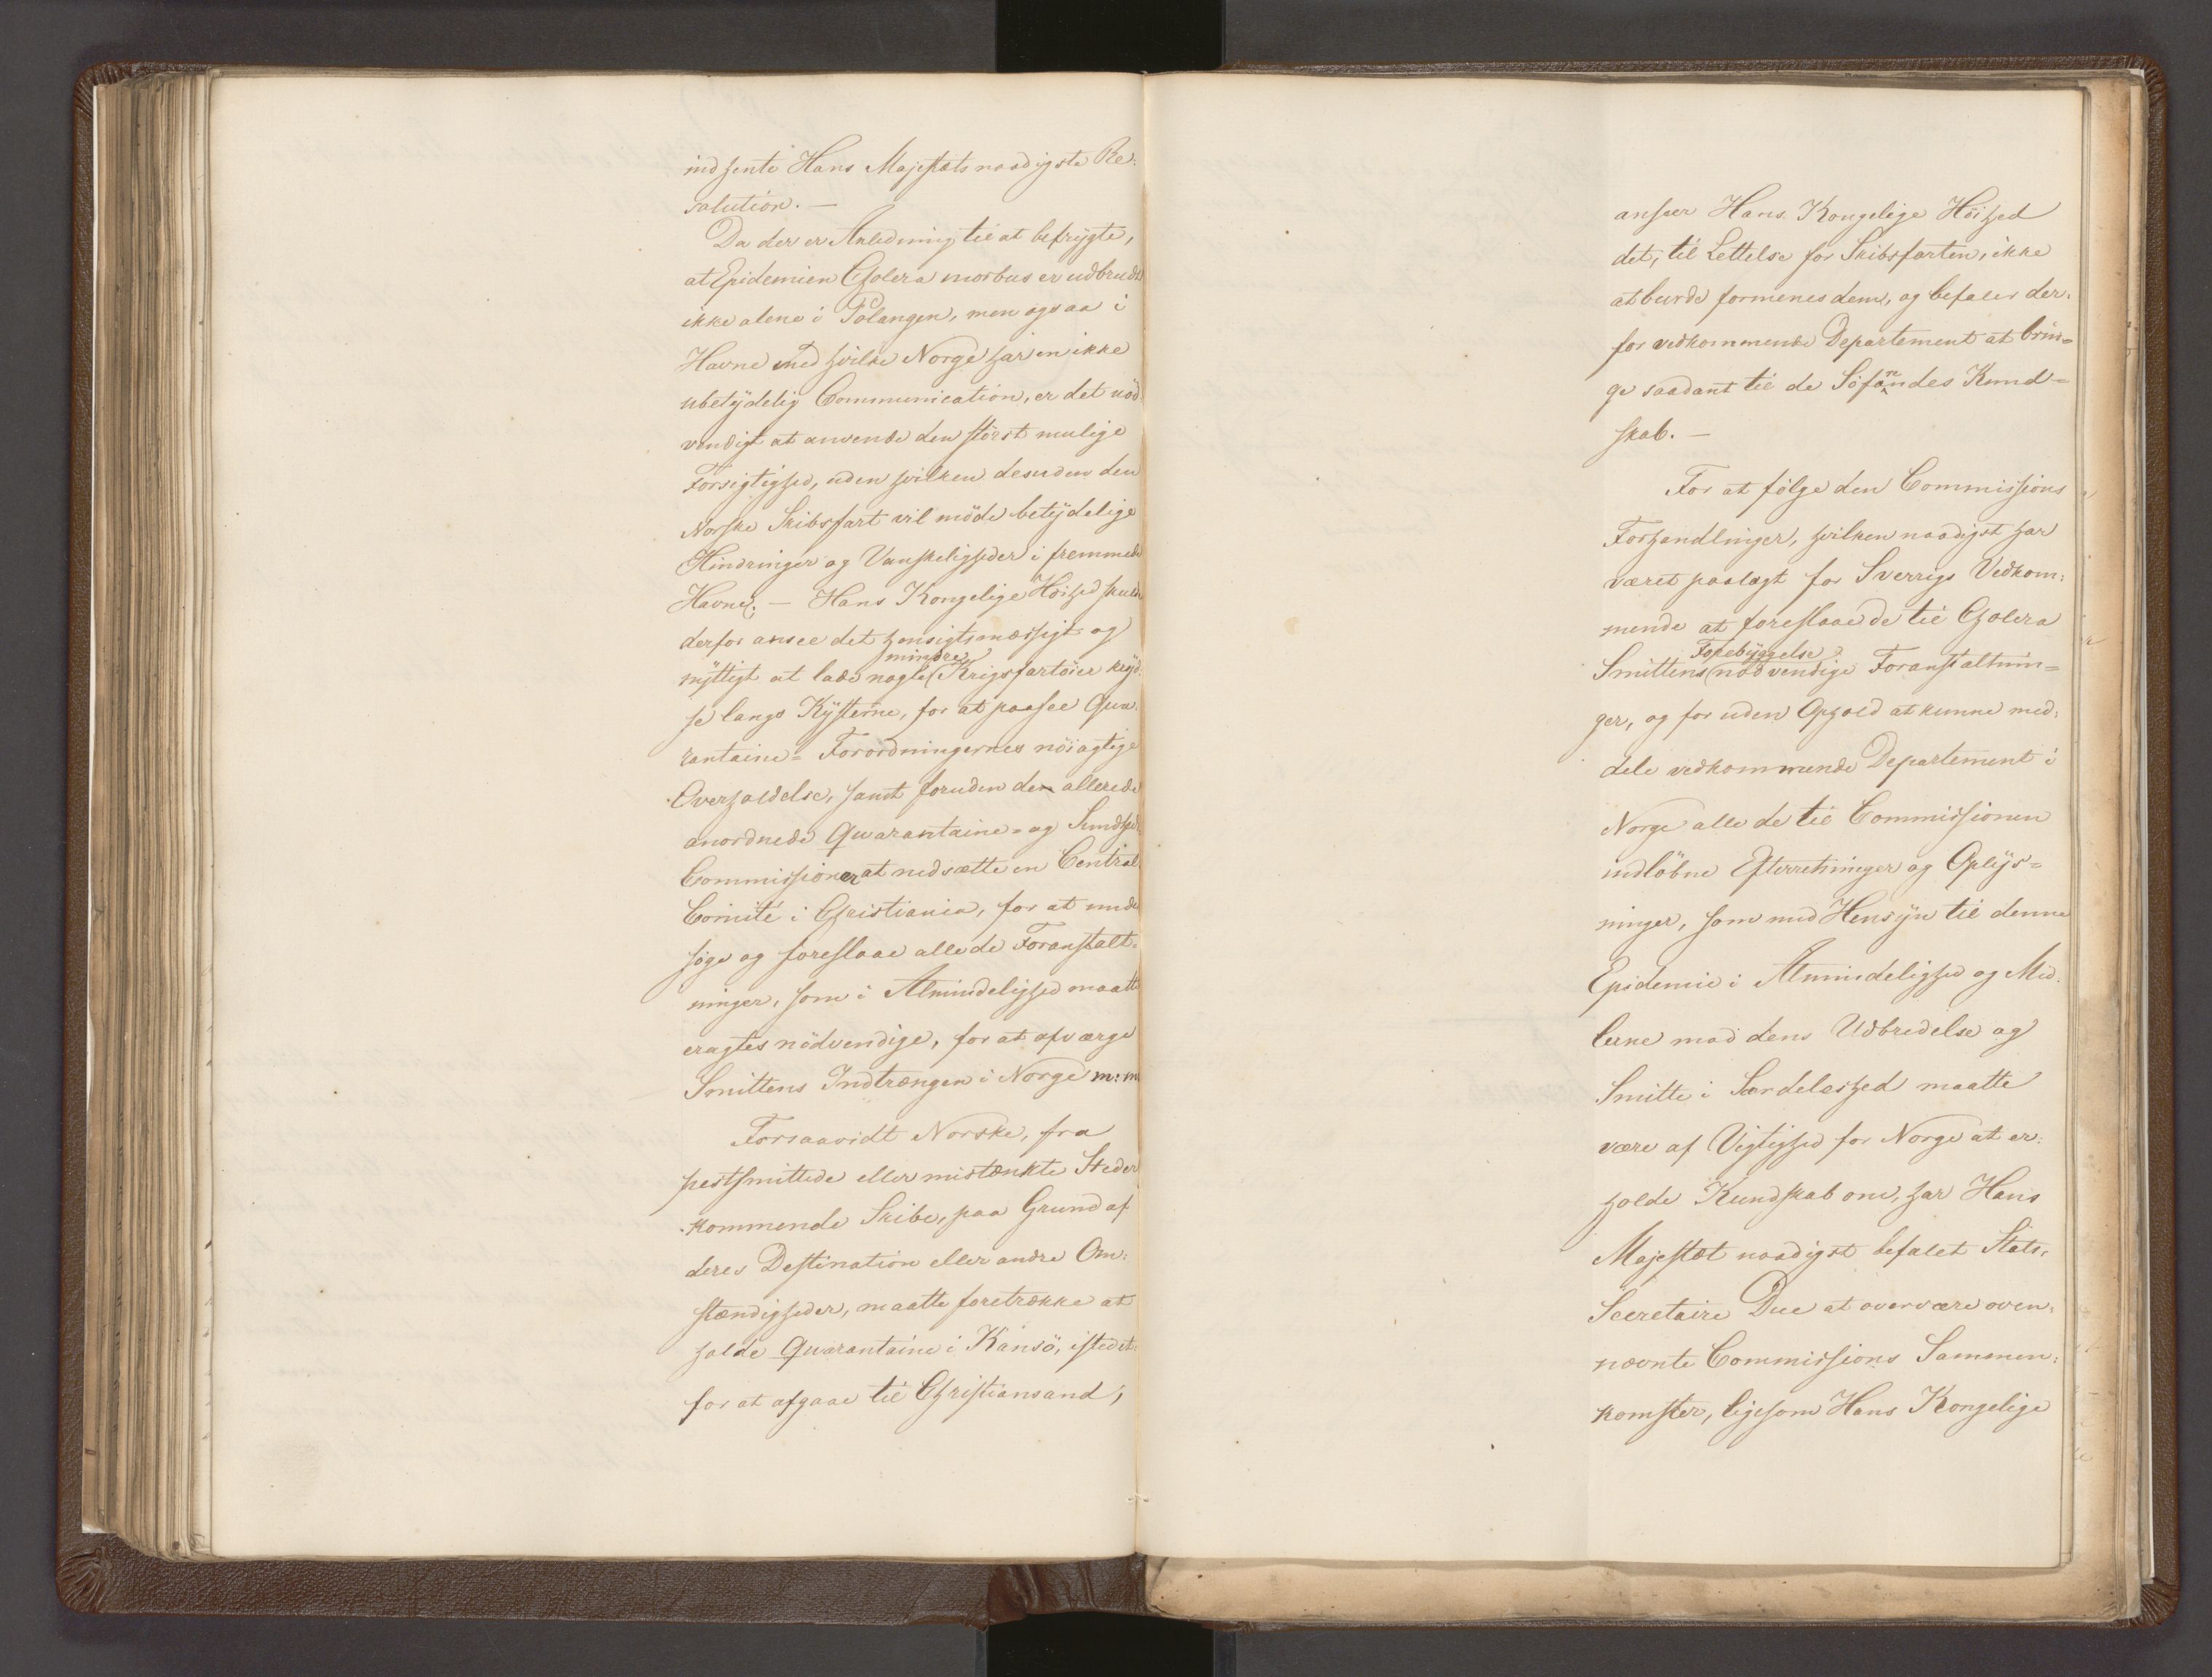 indhente Hans Majestæts naadigste Re:
solution. —
Da der er Anledning til at befrygte,
at Epidemien Cholera morbus er udbrudt
ikke alene i Polangen, men ogsaa i
Havne med hvilke Norge har en ikke
ubetydelig Communication, er det nöd
vendigt at anvende den störst mulige
Forsigtighed, uden hvilken desuden den
Norske Skibsfart vil möde betydelige
Hindringer og Vanskeligheder i fremmede
Havne. — Hans Kongelige Höihed skulde
derfor ansee det hensigtsmæssigt og
nyttigt at lade nogle mindre Krigsfartöier kryd
se langs Kysterne, for at paasee Qua:
rantaine= Forordningernes nöiagtige
Overholdelse, samt foruden den allerede
anordnede Quarantaine= og Sundheds
Commissioner at nedsætte en Central
Comité i Christiania, for at under
söge og foreslaae alle de Foranstalt:
ninger, som i Almindelighed maatte
eragtes nödvendige, for at afværge
Smittens Indtrængen i Norge m: m
Forsaavidt Norske, fra
pestsmittede eller mistænkte Steder
kommende Skibe, paa Grund af
deres Destination eller andre Om:
stændigheder, maatte foretrække at
holde Quarantaine i Känsö, istedet
for at afgaae til Christiansand,
anseer Hans Kongelige Höihed
det, til Lettelse for Skibsfarten, ikke
at burde formenes dem, og befaler der:
for vedkommende Departement at brin=
ge saadant til de Söfarendes Kund=
skab. —
For at fölge den Commissions
Forhandlinger, hvilken naadigst har
været paalagt for Sverrigs Vedkom:
mende at foreslaae de til Cholera
Smittens Forebyggelse nödvendige Foranstaltnin=
ger, og for uden Ophold at kunne med:
dele vedkommende Departement i
Norge alle de til Commissionen
indlöbne Efterretninger og Oplys=
ninger, som med Hensyn til denne
Epidemie i Almindelighed og Mid:
lerne mod dens Udbredelse og
Smitte i Særdeleshed maatte
være af Vigtighed for Norge at er:
holde Kundskab om, har Hans
Majestæt naadigst befalet Stats:
Secretaire Due at overvære oven:
nævnte Commissions Sammen:
komster, ligesom Hans Kongelige